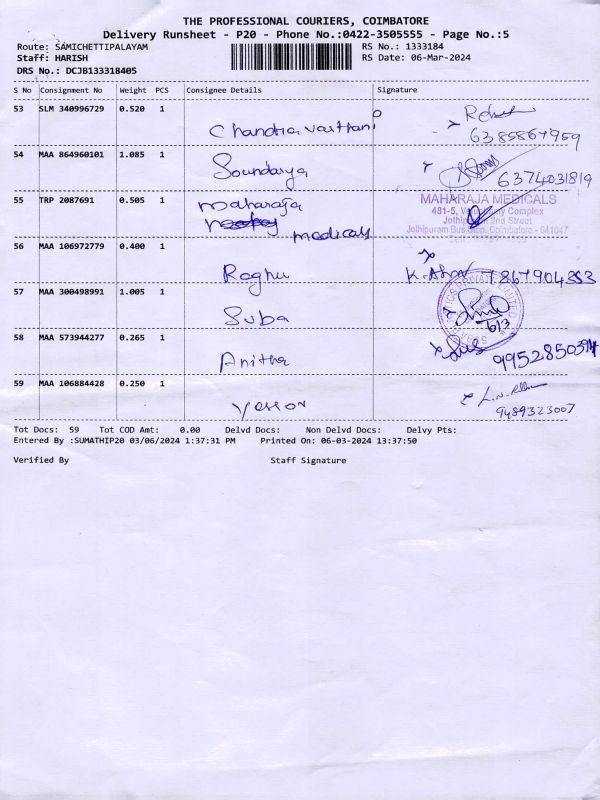 THE PROFESSIONAL COURIERS, COIMBATORE
Delivery Runsheet - P20 - Phone No.:0422-3505555 - Page No.:5
Route: SAMICHETTIPALAYAM
RS No.: 1333184
Staff: HARISH
RS Date: 06-Mar-2024
DRS No.: DCJB133318405
S No Consignment No Weight PCS Consignee Details Signature
53 SLM 340996729 0.520 1
6385867959
54 MAA 864960101 1.085 1 Soundarya
6374031819
55 TRP 2087691 0.505 1 Maharaja
medicals
MAHARAJA MEDICALS
481-5, Complex
2nd Street
Jothipuram Coimbatore - 641047
56 MAA 106972779 0.400 1
Raghu
57 MAA 300498991 1.005 1
Suba
6/3
58 MAA 573944277 0.265 1
Anitha
9952850394
59 MAA 106884428 0.250 1
9489323007
Tot Docs: 59 Tot COD Amt: 0.00 Delvd Docs: Non Delvd Docs: Delvy Pts:
Entered By :SUMATHIP20 03/06/2024 1:37:31 PM Printed On: 06-03-2024 13:37:50
Verified By Staff Signature